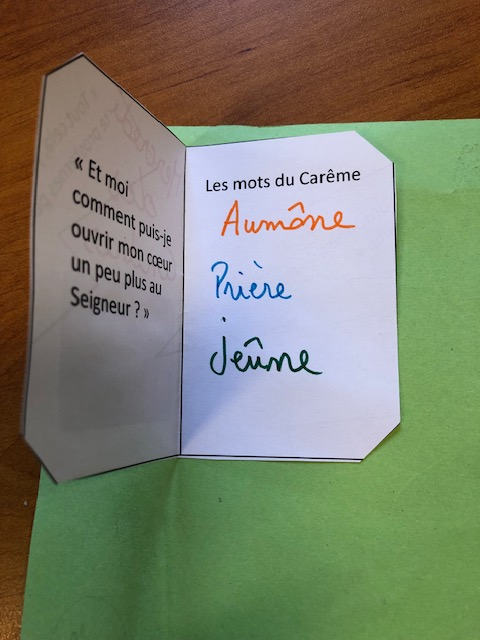 « Et moi
comment puis-je
ouvrir mon cœur
un peu plus au
Seigneur ? »
Les mots du Carême
Aumône
Prière
jeûne